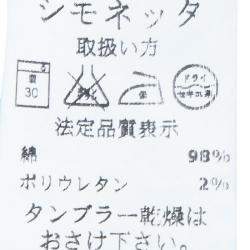 シモネッタ
取扱い方
30
ドライ
法定品質表示
綿 98%
ポリウレタン 2%
タンブラー乾燥は
おさけ下さい。